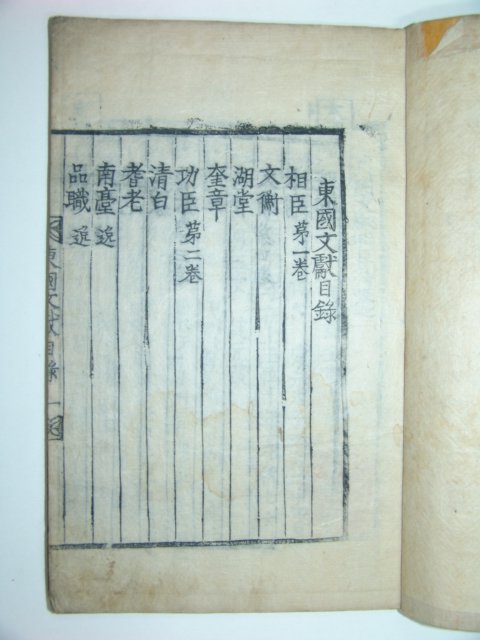 東國文獻目錄
相臣 第一卷
文衡
湖堂
奎章
功臣 第二卷
清白
耆老
南臺 逸
品職 逸
東國文獻目錄 一